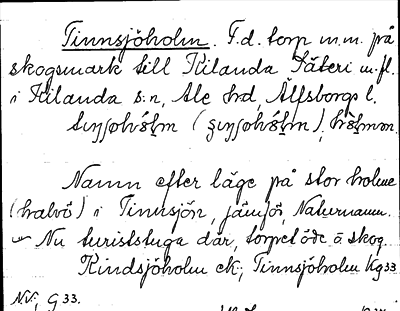 Tinnsjöholm. F.d. torp m.m. på
skogsmark till Kilanda Säteri m.fl.
i Kilanda s:n, Ale hrd, Älfsborgs l.
Namn efter läge på stor holme
(halvö) i Tinnsjön, jämför Naturnamn.
Nu turiststuga där, torpet öde o skog.
Kindsjöholm ek; Tinnsjöholm Kg33
NV; G 33.